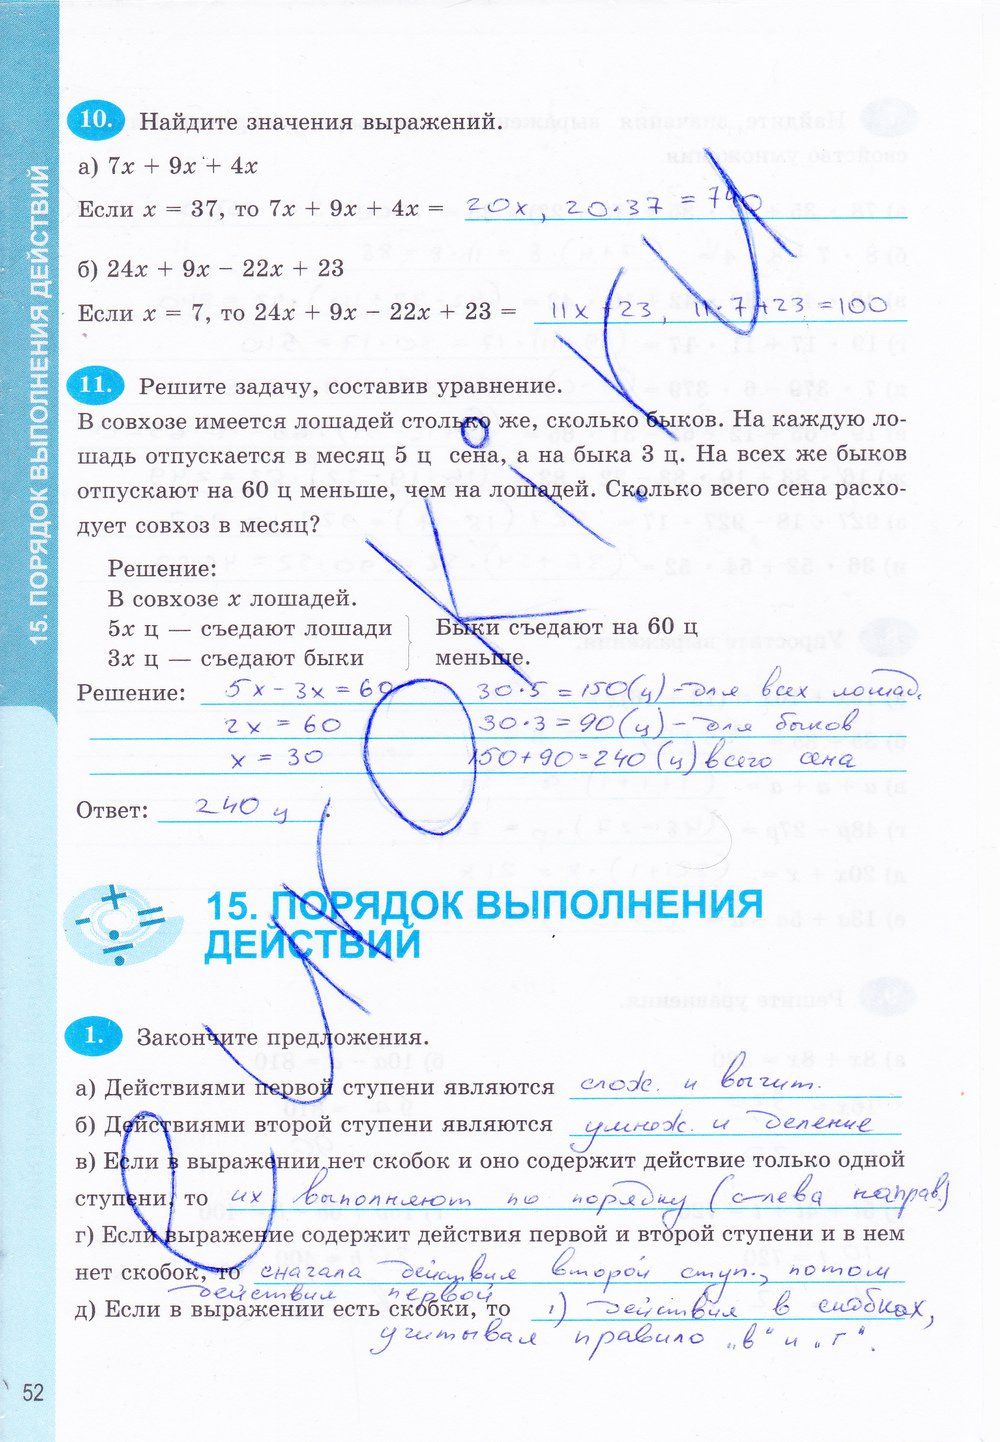 10. Найдите значения выражений.
а) 7x + 9x + 4x
Если x = 37, то 7x + 9x + 4x = 20x, 20·37 = 740
б) 24x + 9x − 22x + 23
Если x = 7, то 24x + 9x − 22x + 23 = 11x+23, 11·7+23=100
11. Решите задачу, составив уравнение.
В совхозе имеется лошадей столько же, сколько быков. На каждую ло-
шадь отпускается в месяц 5 ц сена, а на быка 3 ц. На всех же быков
отпускают на 60 ц меньше, чем на лошадей. Сколько всего сена расхо-
дует совхоз в месяц?
Решение:
В совхозе x лошадей.
5x ц — съедают лошади Быки съедают на 60 ц
3x ц — съедают быки меньше.
Решение: 5x−3x=60 30·5=150(ц)−для всех лошад.
2x=60 30·3=90(ц)−для быков
x=30 150+90=240(ц) всего сена
Ответ: 240 ц.
15. ПОРЯДОК ВЫПОЛНЕНИЯ
ДЕЙСТВИЙ
1. Закончите предложения.
а) Действиями первой ступени являются слож. и вычит.
б) Действиями второй ступени являются умнож. и деление
в) Если в выражении нет скобок и оно содержит действие только одной
ступени, то их выполняют по порядку (слева направ)
г) Если выражение содержит действия первой и второй ступени и в нем
нет скобок, то сначала действия второй ступ., потом
действия первой
д) Если в выражении есть скобки, то 1) действия в скобках,
учитывая правило „в" и „г".
52
15. ПОРЯДОК ВЫПОЛНЕНИЯ ДЕЙСТВИЙ